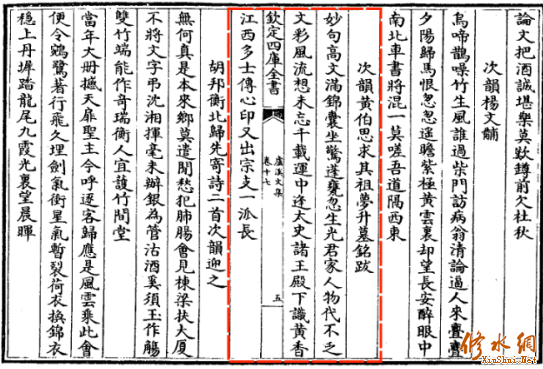 論文把酒誠堪樂莫歎罇前欠杜秋
次韻楊文黼
烏啼鵲噪竹生風誰過柴門訪病翁清論過人來亹亹
夕陽歸馬恨怱怱遥瞻紫極黄雲裏却望長安醉眼中
南北車書将混一莫嗟吾道隔西東
次韻黄伯思求其祖夢升墓銘跋
妙句高文滿錦囊坐驚蓬蓽忽生光君家人物代不乏
文彩風流想未忘千載運中逢太史諸王殿下識黄香
江西多士傳心印又出宗支一派長
欽定四庫全書
盧溪文集
卷十七
五
胡邦衡北歸先寄詩二首次韻迎之
無何真是本來鄉莫遣閒愁犯肺腸會見棟梁扶大厦
不將文字弔沈湘揮毫未辦銀為管沽酒奚須玉作觴
雙竹端能作奇瑞衡人宜護竹間堂
當年大册撼天扉聖主今呼逐客歸應是風雲乘此會
便令鵷鷺著行飛久埋劍氣衝星氣暫裂荷衣換錦衣
穩上丹墀踏龍尾九霞光裏望晨暉
修水網
XiuShui.Net